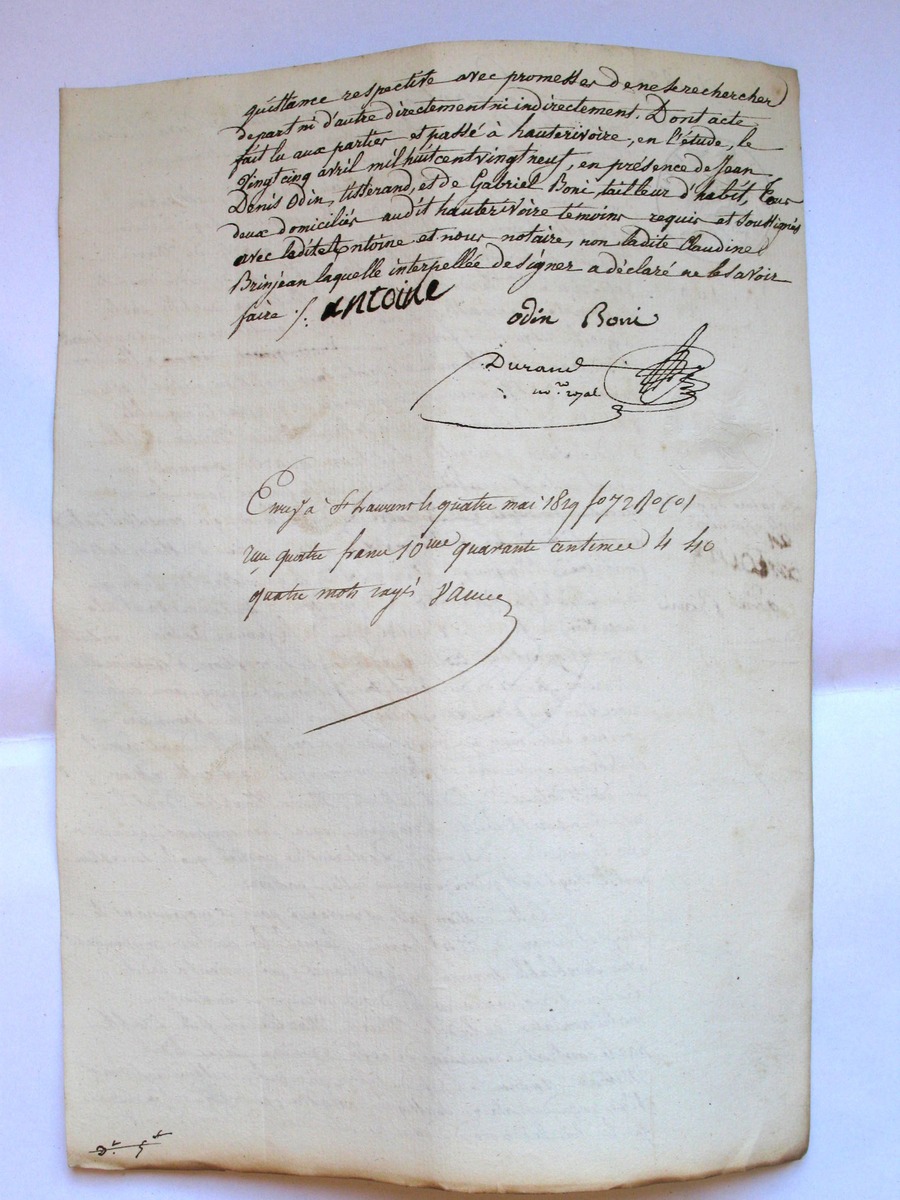 quistance respective avec promesses de ne se rechercher
de part ni d'autre directement ni indirectement. Dont acte
fait lu aux parties et passé à hauterivoire, en l'étude, le
Vingt cinq avril mil huit cent vingt neuf, en présence de Jean
Denis Odin, tisserand, et de Gabriel Boni, tailleur d'habit, tous
deux domiciliés audit hauterivoire témoins requis et soussignés
avec ladite Antoine et nous notaire, non ladite Claudine
Brinjean laquelle interpellée de signer a déclaré ne le savoir
faire ./.
antoine
odin Boni
Durand
no.re royal
Enreg à St Laurent le quatre mai 1829 fo 72
quatre francs 10me quarante centimes 4 40
quatre mots rayés